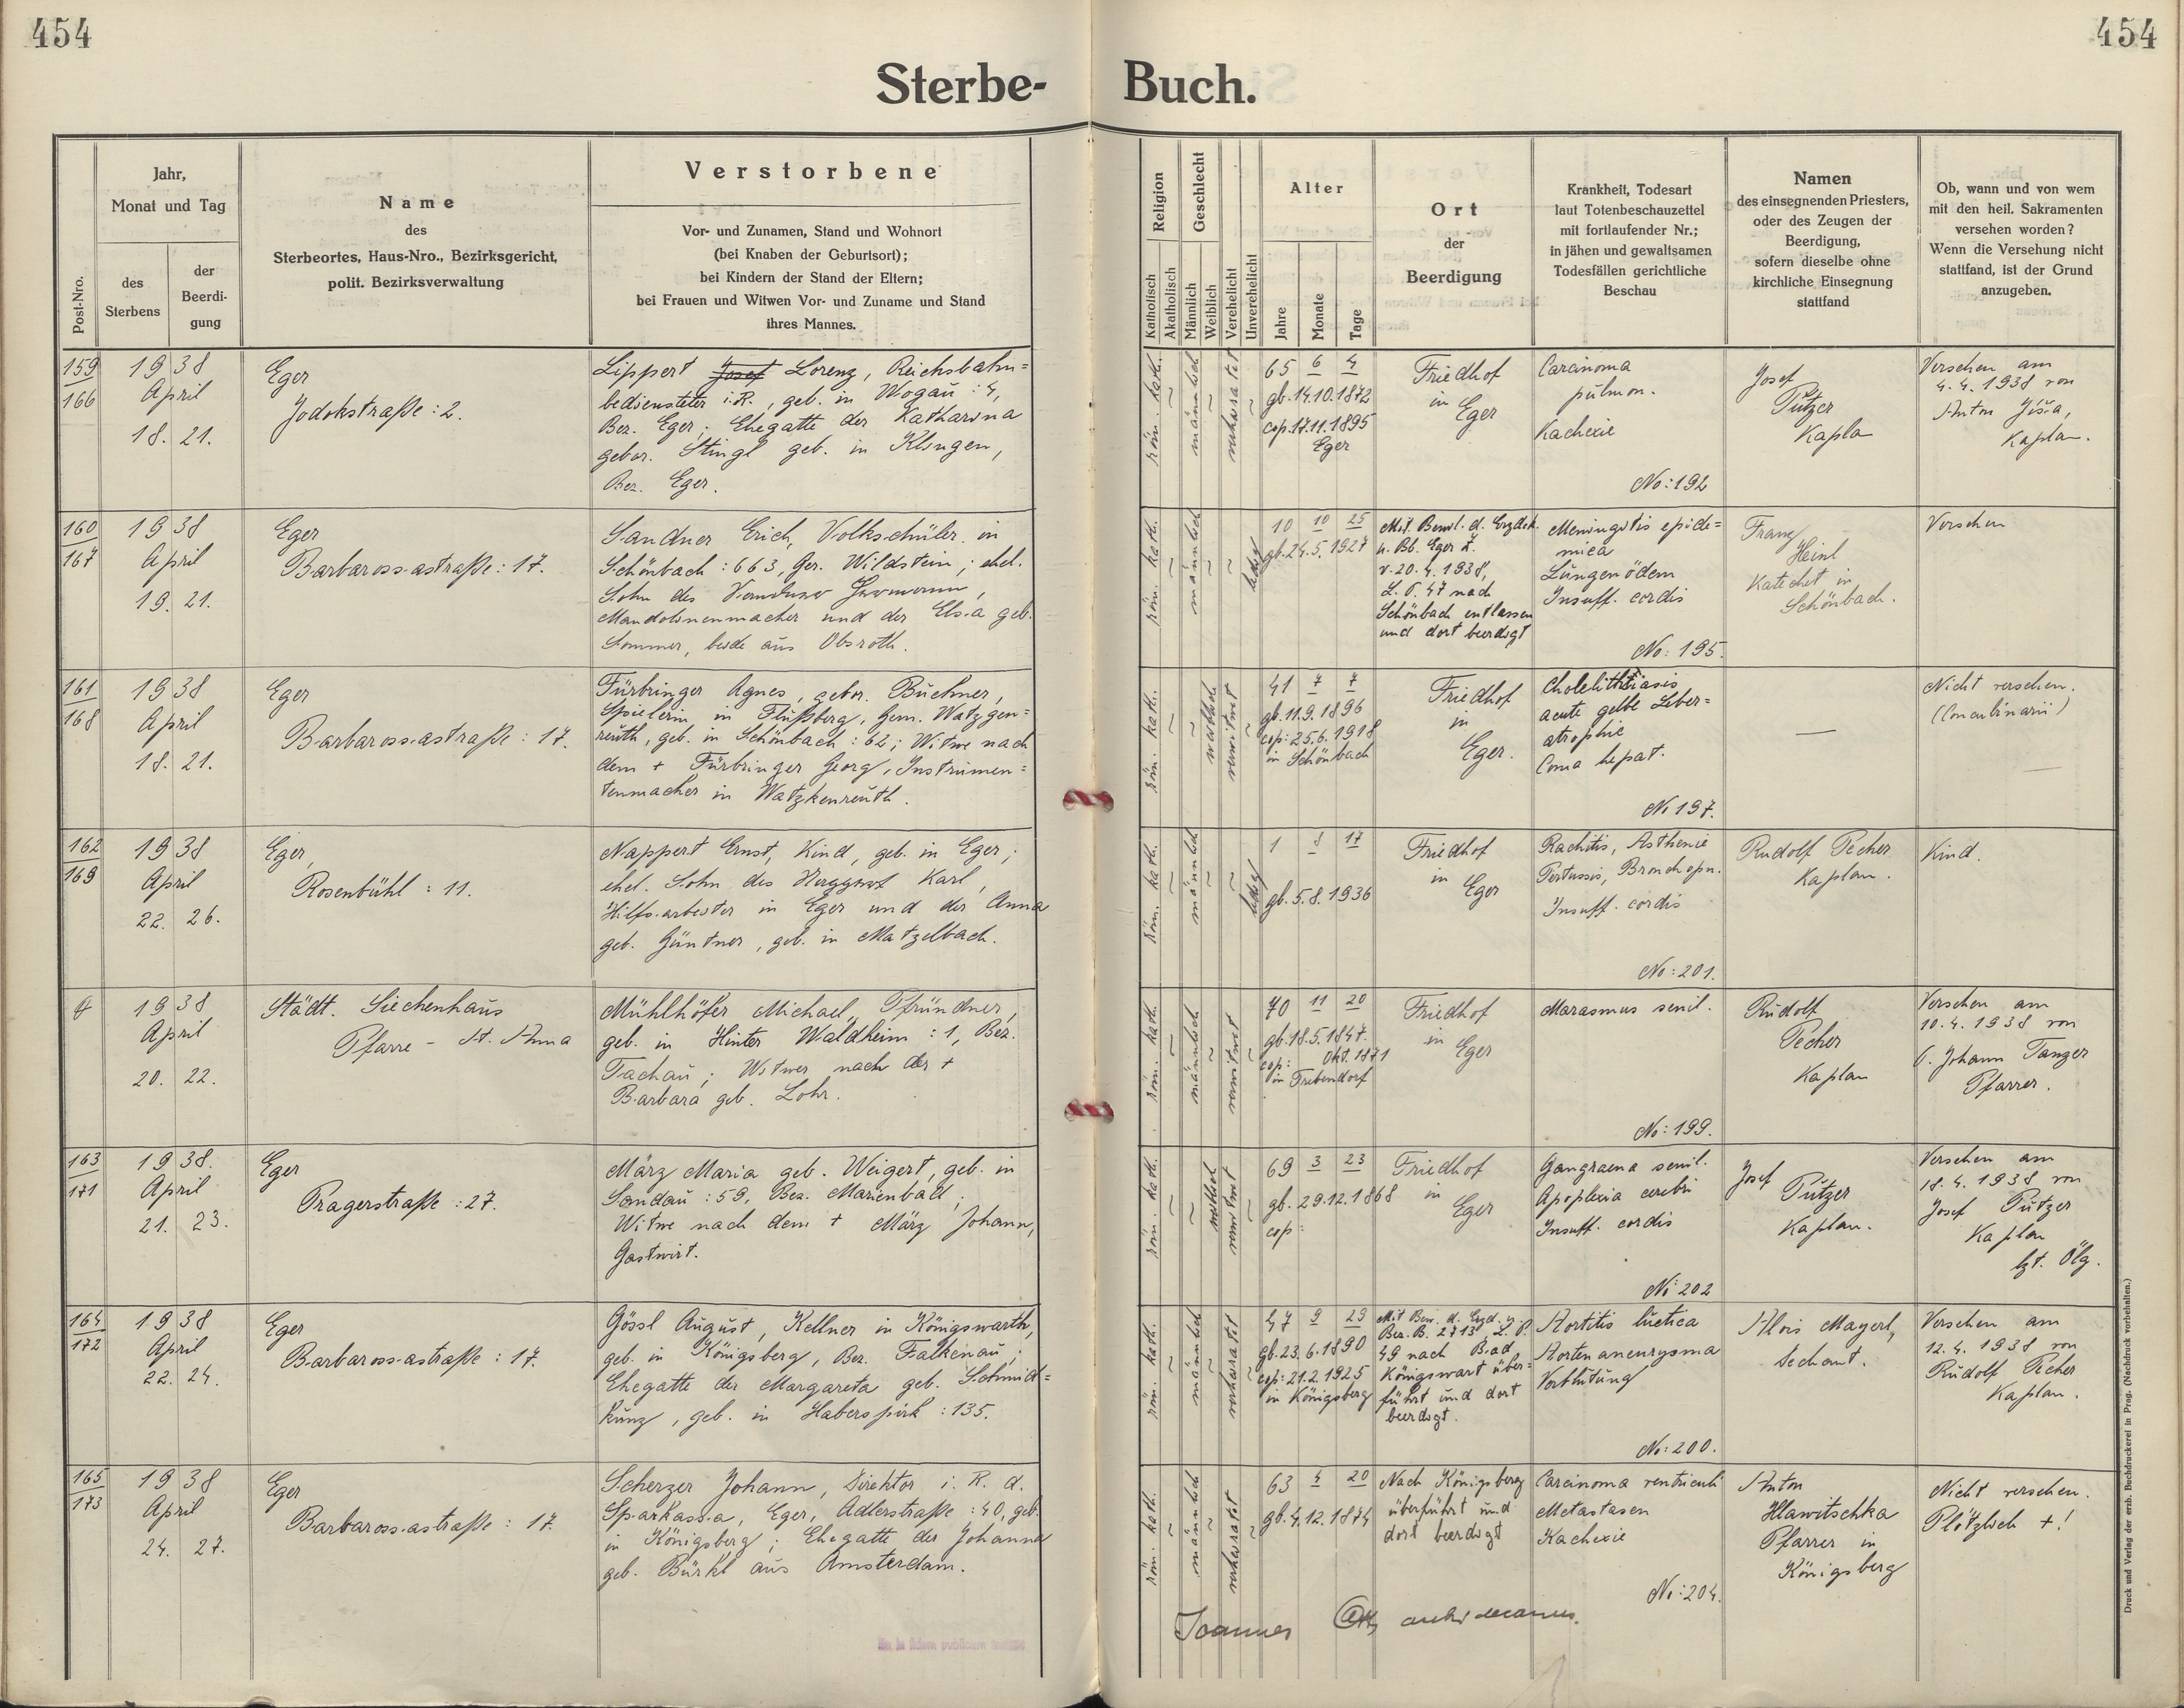 454
454
Sterbe- Buch.
Post-Nro.
Jahr,
Monat und Tag
des
Sterbens
der
Beerdi-
gung
Name
des
Sterbeortes, Haus-Nro., Bezirksgericht,
polit. Bezirksverwaltung
Verstorbene
Vor- und Zunamen, Stand und Wohnort
(bei Knaben der Geburtsort);
bei Kindern der Stand der Eltern;
bei Frauen und Witwen Vor- und Zuname und Stand
ihres Mannes.
Religion
Katholisch
Akatholisch
Geschlecht
Männlich
Weiblich
Verehelicht
Unverehelicht
Alter
Jahre
Monate
Tage
Ort
der
Beerdigung
Krankheit, Todesart
laut Totenbeschauzettel
mit fortlaufender Nr.;
in jähen und gewaltsamen
Todesfällen gerichtliche
Beschau
Namen
des einsegnenden Priesters,
oder des Zeugen der
Beerdigung,
sofern dieselbe ohne
kirchliche Einsegnung
stattfand
Ob, wann und von wem
mit den heil. Sakramenten
versehen worden?
Wenn die Versehung nicht
stattfand, ist der Grund
anzugeben.
159
166
1938
April
18. 21.
Eger
Jodokstraße : 2.
Lippert Josef Lorenz, Reichsbahn=
bediensteter i.R., geb. in Wogau : 4,
Bez. Eger; Ehegatte der Katharina
gebor. Stingl geb. in Klingen,
Bez. Eger.
röm. kath.
männlich
verheiratet
65 6 4
gb. 14.10.1872
cop. 17.11.1895
Eger
Friedhof
in
Eger
Carcinoma
pulmon.
Kachexie
No: 192
Josef
Pützer
Kapla
Versehen am
4. 4. 1938 von
Anton Jiša,
Kaplan.
160
167
1938
April
19. 21.
Eger
Barbarossastraße : 17.
Sandner Erich, Volksschüler in
Schönbach : 663, Ger. Wildstein; ehel.
Sohn des Sandner Hermann,
Mandolinenmacher und der Elsa geb.
Sommer, beide aus Absroth.
röm. kath.
männlich
ledig
10 10 25
gb. 24.5.1927
Mit Bewl. d. Erzdek.
u. Bb. Eger Z.
v. 20. 4. 1938,
L. P. 47 nach
Schönbach entlassen
und dort beerdigt
Meningitis epide=
mica
Lungenödem
Insuff. cordis
No: 195.
Franz
Heinl
Katechet in
Schönbach.
Versehen
161
168
1938
April
18. 21.
Eger
Barbarossastraße : 17.
Fürbringer Agnes, gebor. Büchner,
Spielerin in Flußberg, Gem. Watzgen=
reuth, geb. in Schönbach : 62; Witwe nach
dem + Fürbringer Georg, Instrumen=
tenmacher in Watzkenreuth.
röm. kath.
weiblich
verwitwet
41 7 7
gb. 11.9.1896
cop: 25.6.1918
in Schönbach
Friedhof
in
Eger.
Cholelithiasis
acute gelbe Leber=
atrophie
Coma hepat.
No 197.
—
Nicht versehen.
(Concubinarii)
162
169
1938
April
22. 26.
Eger,
Rosenbühl : 11.
Nappert Ernst, Kind, geb. in Eger;
ehel. Sohn des Nappert Karl,
Hilfsarbeiter in Eger und der Anna
geb. Güntner, geb. in Matzelbach.
röm. kath.
männlich
ledig
1 8 17
gb. 5.8.1936
Friedhof
in
Eger
Rachitis, Asthenie
Pertussis, Bronchopn.
Insuff. cordis
No: 201.
Rudolf Pecher
Kaplan.
Kind.
1938
April
20. 22.
Städt. Siechenhaus
Pfarre - St. Anna
Mühlhöfer Michael, Pfründner,
geb. in Hinter Waldheim : 1, Bez.
Tachau; Witwer nach der +
Barbara geb. Lohr.
röm. kath.
männlich
verwitwet
70 11 20
gb. 18.5.1847.
cop: Okt. 1871
in Tribendorf
Friedhof
in
Eger
Marasmus senil.
No: 199.
Rudolf
Pecher
Kaplan
Versehen am
10. 4. 1938 von
P. Johann Tanzer
Pfarrer.
163
171
1938.
April
21. 23.
Eger
Pragerstraße : 27.
März Maria geb. Weigert, geb. in
Sandau : 59, Bez. Marienbad;
Witwe nach dem + März Johann,
Gastwirt.
röm. kath.
weiblich
verwitwet
69 3 23
gb. 29.12.1868
cop:
Friedhof
in
Eger
Gangraena senil.
Apoplexia cerebri
Insuff. cordis
No 202
Josef
Pützer
Kaplan.
Versehen am
18. 4. 1938 von
Josef Pützer
Kaplan
lzt. Ölg.
164
172
1938
April
22. 24.
Eger
Barbarossastraße : 17.
Gössl August, Kellner in Königswarth,
geb. in Königsberg, Bez. Falkenau;
Ehegatte der Margareta geb. Schmid=
kunz, geb. in Haberspirk : 135.
röm. kath.
männlich
verheiratet
47 9 29
gb. 23.6.1890
cop: 21.2.1925
in Königsberg
Mit Bew. d. Erzd. u.
Bez. B. 2713 L. P.
49 nach Bad
Königswart über=
führt und dort
beerdigt.
Aortitis luetica
Aortenaneurysma
Verblutung
No: 200.
Alois Mayerl,
Dechant.
Versehen am
12. 4. 1938 von
Rudolf Pecher
Kaplan.
165
173
1938
April
24. 27.
Eger
Barbarossastraße : 17.
Scherzer Johann, Direktor i. R. d.
Sparkassa, Eger, Adlerstraße : 40, geb.
in Königsberg; Ehegatte der Johanna
geb. Bürkl aus Amsterdam.
röm. kath.
männlich
verheiratet
63 4 20
gb. 4.12.1874
Nach Königsberg
überführt und
dort beerdigt
Carcinoma ventriculi
Metastasen
Kachexie
No: 204.
Anton
Hlawitschka
Pfarrer in
Königsberg
Nicht versehen.
Plötzlich +!
Joannes
Druck und Verlag der erzb. Buchdruckerei in Prag. (Nachdruck vorbehalten.)